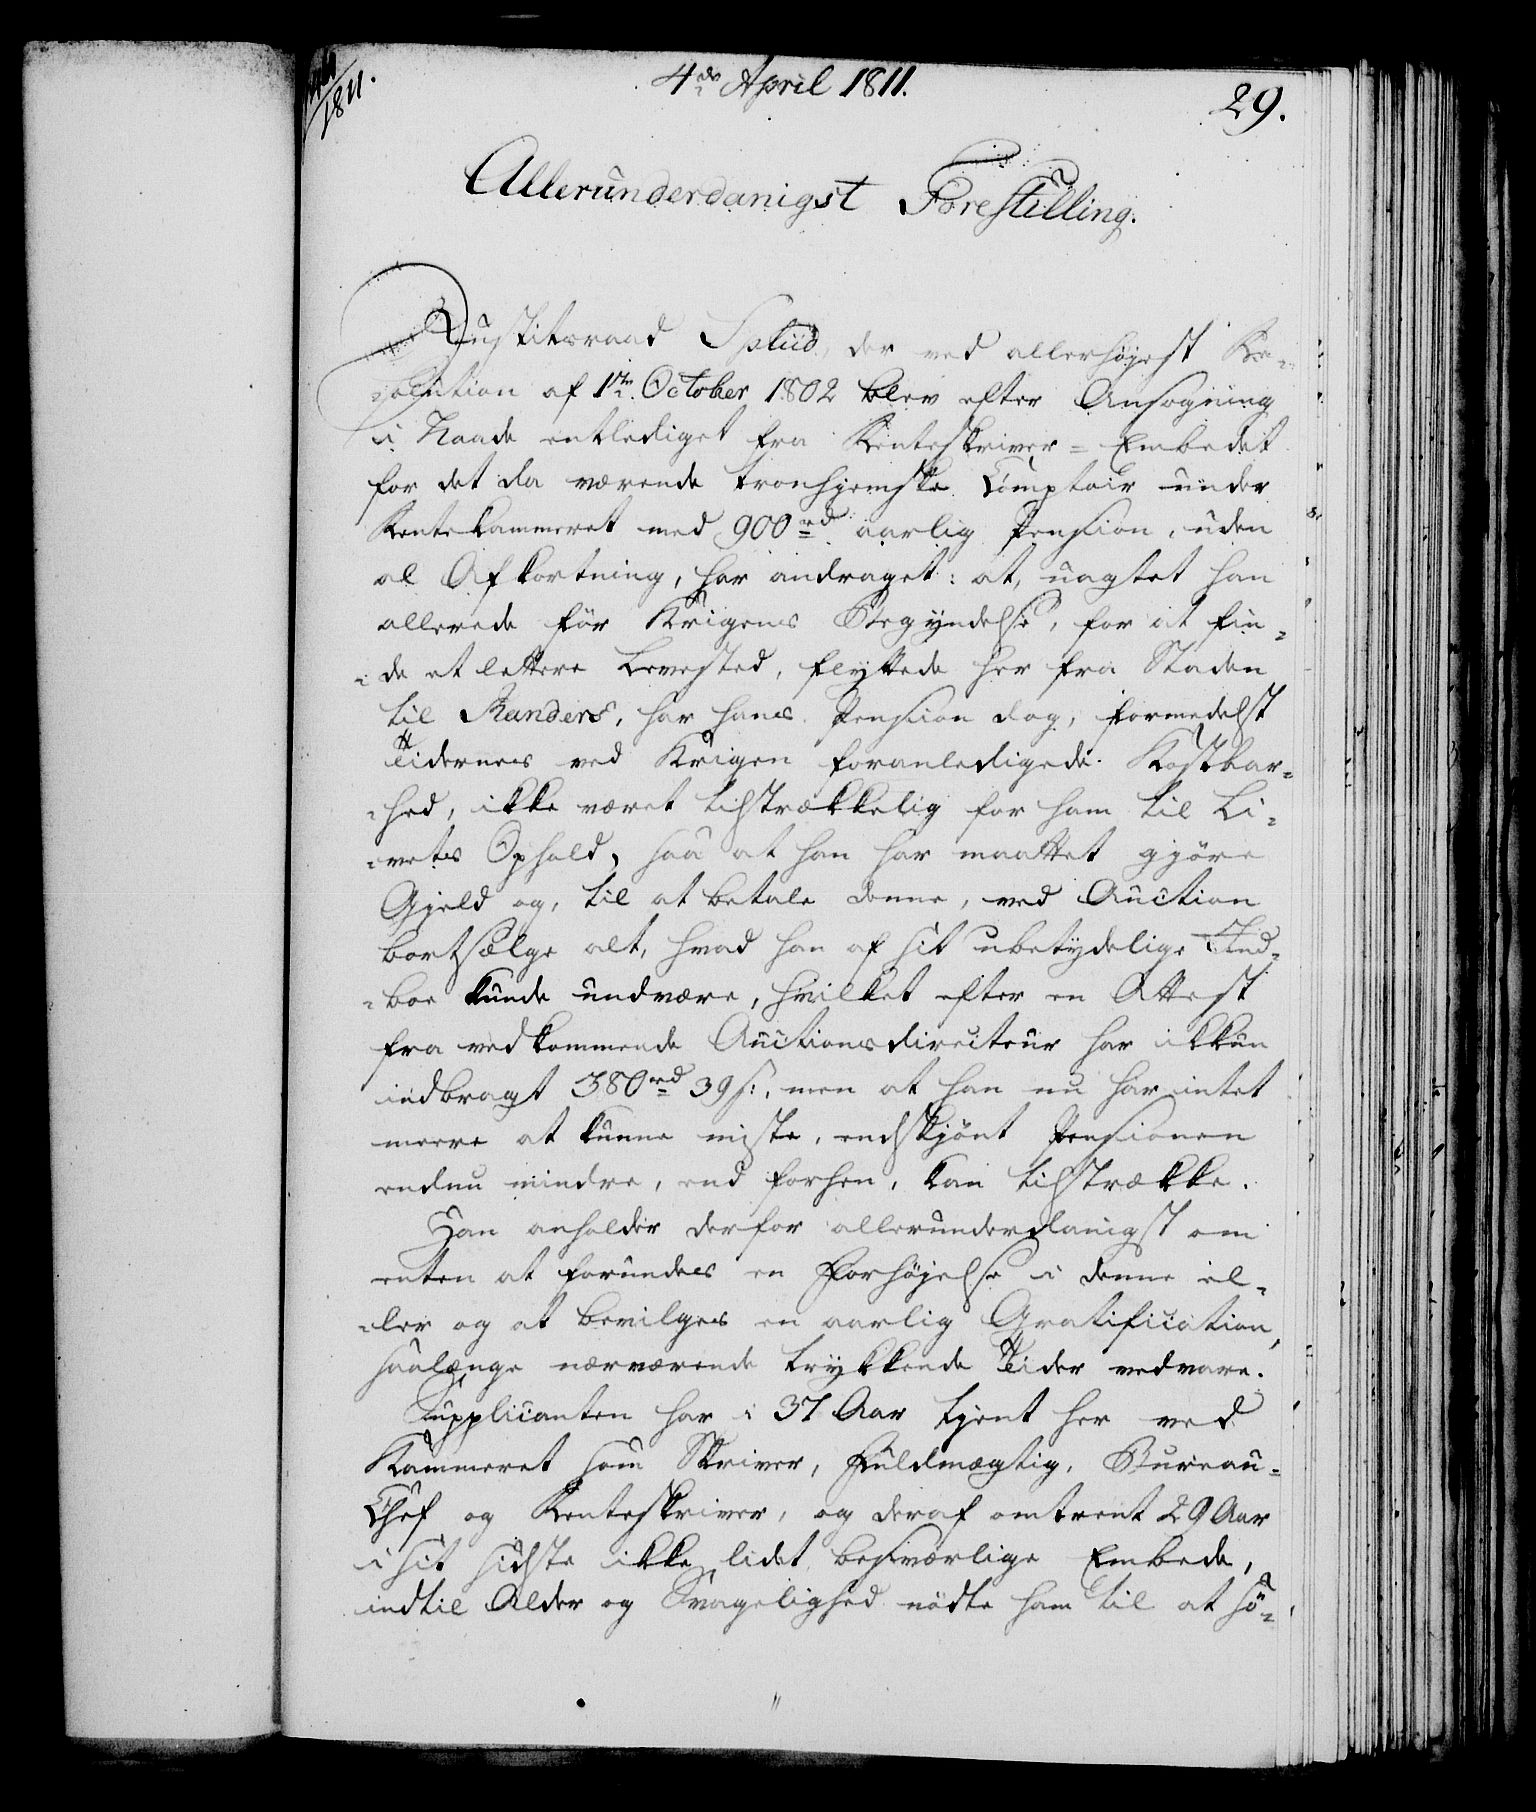 1811.
4de April 1811.
29.
Allerunderdanigst Forestilling.
Justitsraad Spliid, der ved allerhøyest Re-
solution af 1ste October 1802 blev efter Ansøgning
i Naade entlediget fra Renteskriver-Embedet
for det da værende tronhjemske Comptoir under
Rentekammeret med 900 rd aarlig Pension, uden
al Afkortning, har andraget: at, uagtet han
allerede før Krigens Begyndelse, for at fin-
de et lettere Levested, flyttede her fra Staden
til Randers, har hans Pension dog, formedelst
Tidernes ved Krigen foranledigede Kostbar-
hed, ikke været tilstrækkelig for ham til Li-
vets Ophold, saa at han har maattet gjøre
Gjeld og, til at betale denne, ved Auction
bortsælge alt, hvad han af sit ubetydelige Ind-
boe kunde undvære, hvilket efter en Attest
fra vedkommende Auctionsdirecteur har ikkun
indbragt 380 rd 39 s:, men at han nu har intet
meere at kunne miste, endskjønt Pensionen
endnu mindre, end forhen, kan tilstrække.
Han anholder derfor allerunderdanigst om
enten at forundes en Forhøjelse i denne el-
ler og at bevilges en aarlig Gratification,
saalænge nærværende trykkende Tider vedvare.
Supplicanten har i 37 Aar tjent her ved
Kammeret som Skriver, Fuldmægtig, Bureau-
Chef og Renteskriver, og deraf omtrent 29 Aar
i sit sidste ikke lidet besværlige Embede,
indtil Alder og Svagelighed nødte ham til at sø-